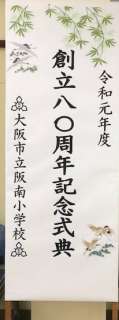 令和元年度
創立八〇周年記念式典
大阪市立阪南小学校